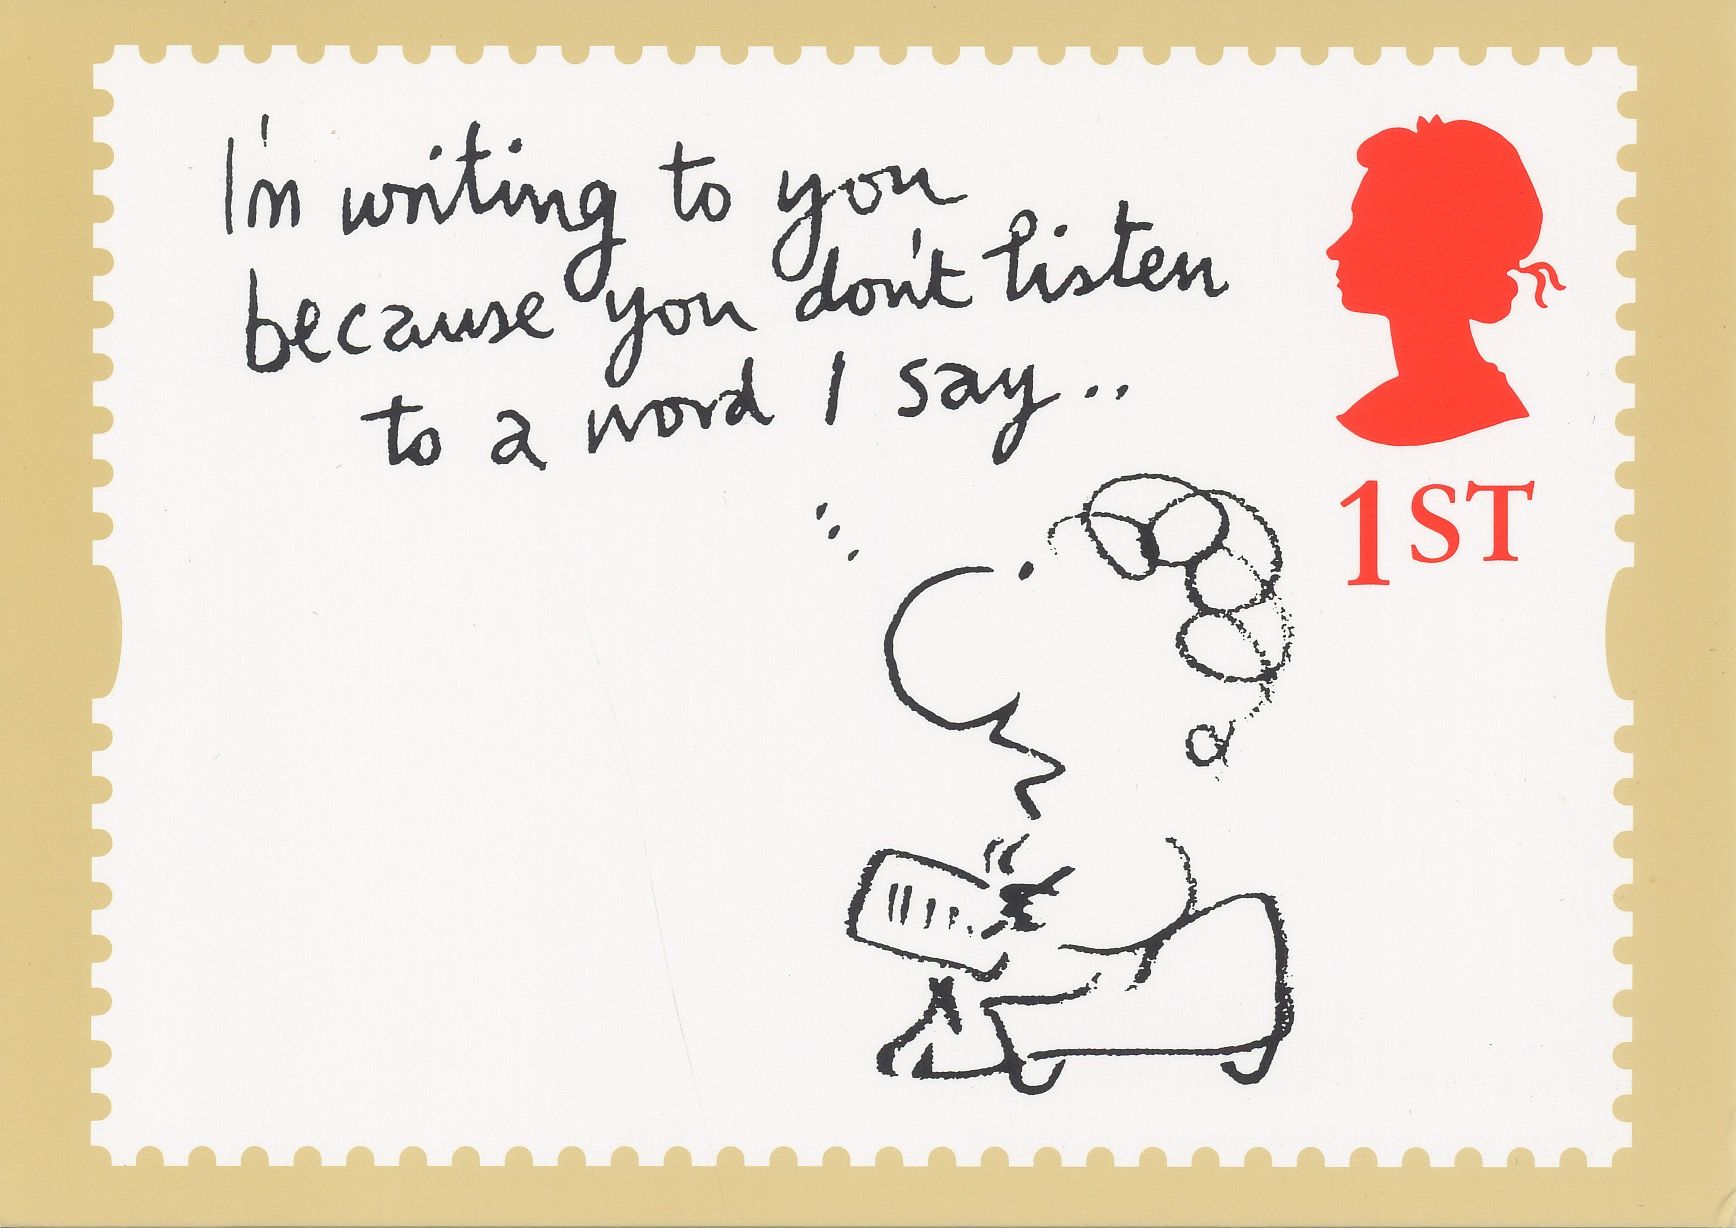 I'm writing to you
because you don't listen
to a word I say..
1ST